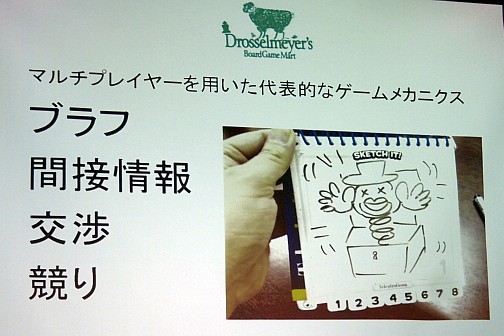 Drosselmeyer's
BoardGame Mart
マルチプレイヤーを用いた代表的なゲームメカニクス
ブラフ
間接情報
交渉
競り
SKETCH IT!
8
1 2 3 4 5 6 7 8